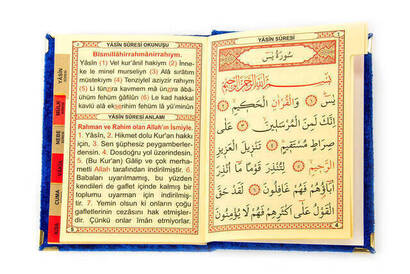 YÂSÎN SÛRESİ OKUNUŞU
Bismillâhirrahmânirrahîym.
Yâsîn (1) Vel kur'ânil hakiym (2) İnne-
ke le minel murseliyn (3) Alâ sırâtım
müstekıym (4) Tenziylel aziyzir rahiym
(5) Li tünzira kavmem mâ ünzira âbâ-
ühüm fehüm ğâfilûn (6) Le kad hakkal
kavlü alâ ekserihim fehüm lâ yü'minûn
YÂSÎN SÛRESİ ANLAMI
Rahman ve Rahim olan Allah'ın İsmiyle.
1. Yâsîn, 2. Hikmet dolu Kur'an hakkı
için, 3. Sen şüphesiz peygamberler-
densin. 4. Dosdoğru yol üzerindesin.
5. (Bu Kur'an) Gâlip ve çok merha-
metli Allah tarafından indirilmiştir. 6.
Babaları uyarılmamış, bu yüzden
kendileri de gaflet içinde kalmış bir
toplumu uyarman için indirilmiş-
tir. 7. Yemin olsun ki onların çoğu
gafletlerinin cezasını hak etmişler-
dir. Çünkü onlar îman etmiyorlar.
YÂSİN
MÜLK
NEBE
CUMA
YÂSÎN SÛRESİ
سُورَةُ يٰسٓ
بِسْمِ اللّٰهِ الرَّحْمٰنِ الرَّحِيمِ
يٰسٓ ﴿١﴾ وَالْقُرْاٰنِ الْحَكِيمِ ﴿٢﴾
اِنَّكَ لَمِنَ الْمُرْسَلِينَ ﴿٣﴾ عَلٰى
صِرَاطٍ مُسْتَقِيمٍ ﴿٤﴾ تَنْزِيلَ الْعَزِيزِ
الرَّحِيمِ ﴿٥﴾ لِتُنْذِرَ قَوْمًا مَٓا اُنْذِرَ
اٰبَٓاؤُهُمْ فَهُمْ غَافِلُونَ ﴿٦﴾ لَقَدْ حَقَّ
الْقَوْلُ عَلٰٓى اَكْثَرِهِمْ فَهُمْ لَا يُؤْمِنُونَ